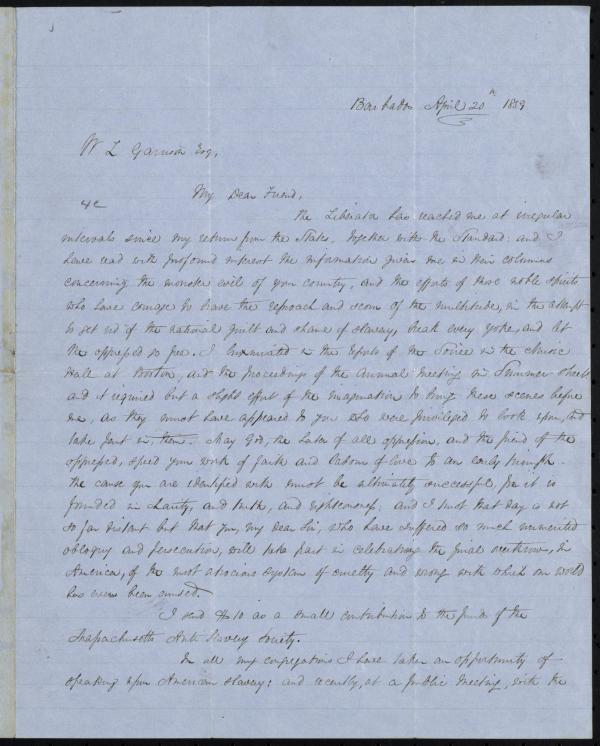 Barbados April 20th 1859
W L Garrison Esq,
My Dear Friend,
The Liberator has reached me at irregular
intervals since my return from the States, together with the Standard: and I
have read with profound interest the information given me in their columns
concerning the monster evil of your country, and the efforts of those noble spirits
who have courage to brave the reproach and scorn of the multitude, in the attempt
to get rid of the national guilt and shame of slavery, break every yoke, and let
the oppressed go free. I luxuriated in the reports of the Soirée in the Music
Hall at Boston, and the proceedings of the Annual Meeting in Summer Street
and it required but a slight effort of the imagination to bring these scenes before
me, as they must have appeared to you who were privileged to look upon, and
take part in, them. May God, the hater of all oppression, and the friend of the
oppressed, speed your work of faith and labour of love to an early triumph.
The cause you are identified with must be ultimately successful, for it is
founded in charity, and truth, and righteousness; and I trust that day is not
so far distant but that you, my dear Sir, who have suffered so much unmerited
obloquy and persecution, will take part in celebrating the final overthrow, in
America, of the most atrocious system of cruelty and wrong with which our world
has ever been cursed.
I send $10 as a small contribution to the funds of the
Massachusetts Anti Slavery Society.
In all my congregations I have taken an opportunity of
speaking upon American slavery: and recently, at a public meeting, with the